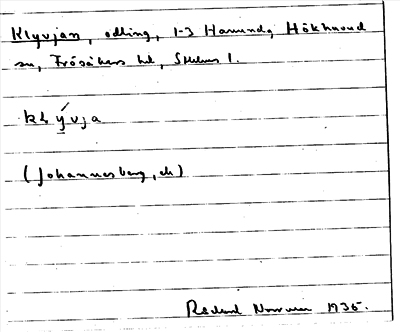 Klyvjan, odling, 1-3 Hamunda, Hökhuvud
sn, Frösåkers hd, Sthlms l.
klývja
(Johannesberg, ch)
1935.